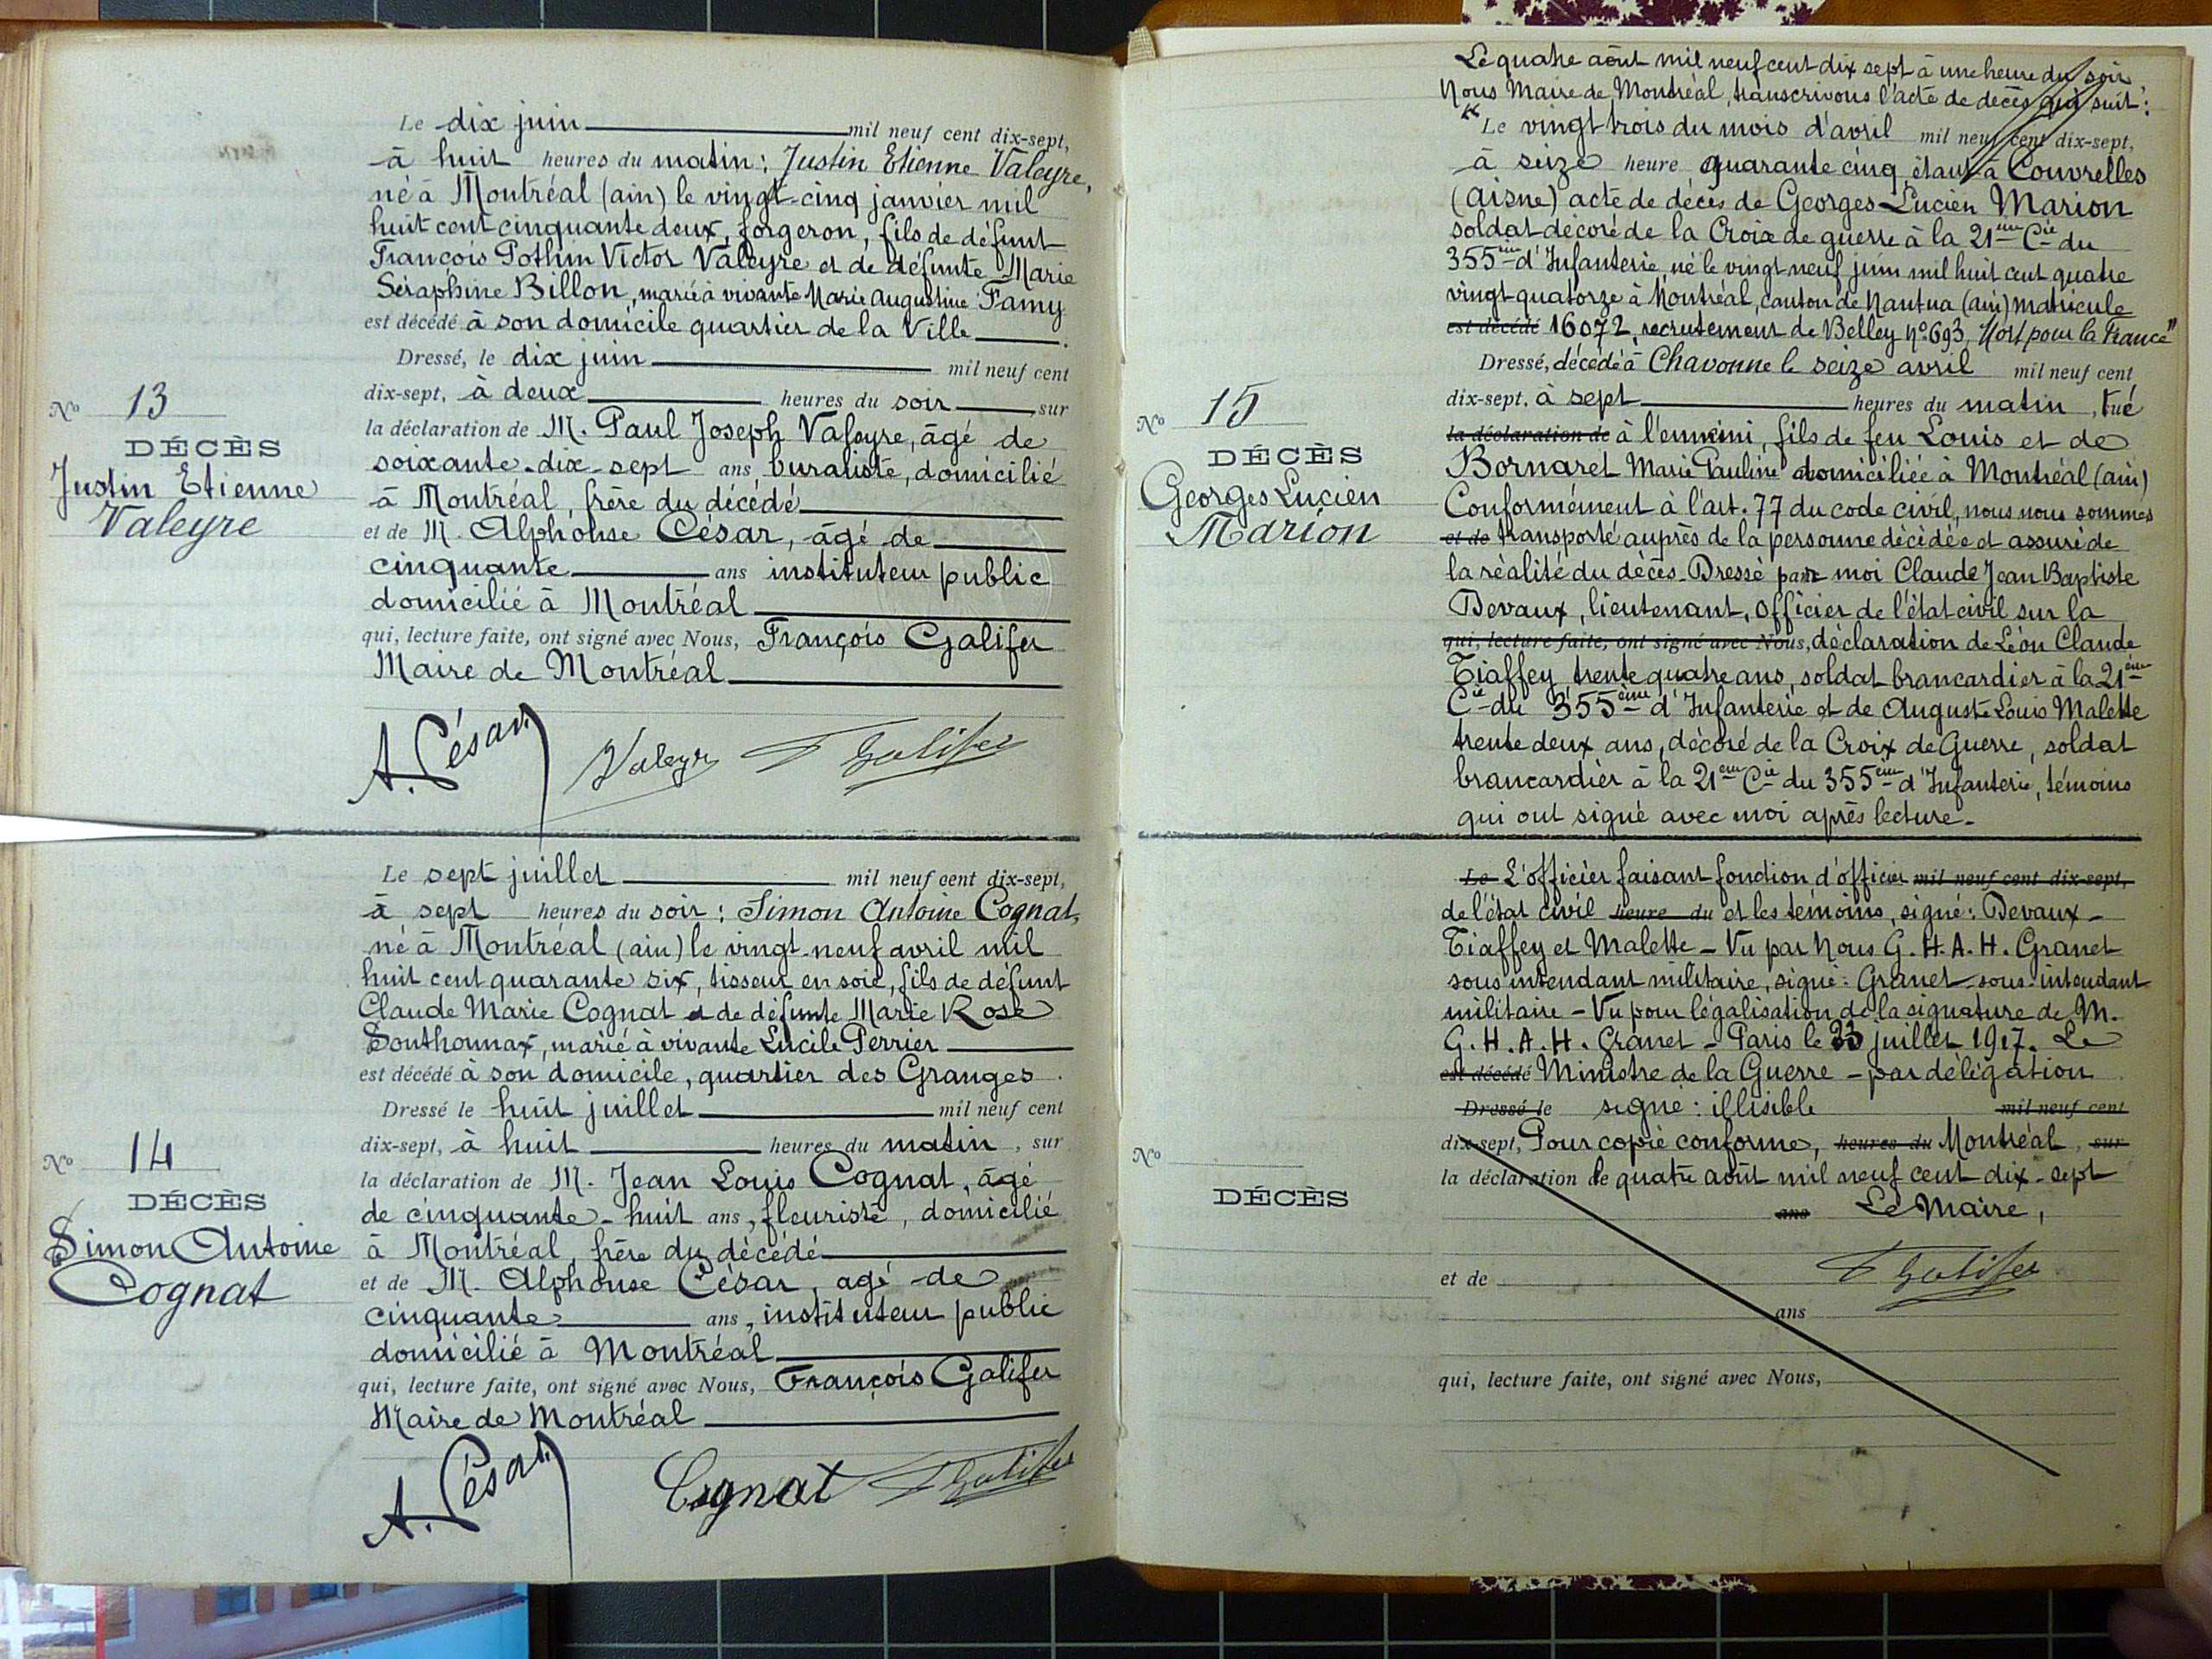 Le dix juin mil neuf cent dix-sept,
à huit heures du matin : Justin Etienne Valeyre,
né à Montréal (ain) le vingt-cinq janvier mil
huit cent cinquante deux, forgeron, fils de défunt
François Pothin Victor Valeyre et de défunte Marie
Séraphine Billon, marié à vivante Marie Augustine Famy
est décédé à son domicile quartier de la Ville.
Dressé, le dix juin mil neuf cent
dix-sept, à deux heures du soir, sur
la déclaration de M. Paul Joseph Valeyre, âgé de
soixante-dix-sept ans, buraliste, domicilié
à Montréal, frère du décédé
et de M. Alphonse César, âgé de
cinquante ans instituteur public
domicilié à Montréal
qui, lecture faite, ont signé avec Nous, François Galifer
Maire de Montréal
A. César Valeyre F Galifer
No 13
DÉCÈS
Justin Etienne
Valeyre
Le sept juillet mil neuf cent dix-sept,
à sept heures du soir : Simon Antoine Cognat,
né à Montréal (ain) le vingt-neuf avril mil
huit cent quarante six, tisseur en soie, fils de défunt
Claude Marie Cognat et de défunte Marie Rose
Southonnax, marié à vivante Lucile Perrier
est décédé à son domicile, quartier des Granges.
Dressé le huit juillet mil neuf cent
dix-sept, à huit heures du matin, sur
la déclaration de M. Jean Louis Cognat, âgé
de cinquante-huit ans, fleuriste, domicilié
à Montréal, frère du décédé
et de M. Alphonse César, agé de
cinquante ans, instituteur public
domicilié à Montréal
qui, lecture faite, ont signé avec Nous, François Galifer
Maire de Montréal
A. César Cognat F Galifer
No 14
DÉCÈS
Simon Antoine
Cognat
Le quatre août mil neuf cent dix sept à une heure du soir
Nous Maire de Montréal, transcrivons l'acte de décès qui suit :
"Le vingt trois du mois d'avril mil neuf cent dix-sept,
à seize heure quarante cinq étant à Couvrelles
(Aisne) acte de décès de Georges Lucien Marion
soldat décoré de la Croix de guerre à la 21ème Cie du
355ème d'Infanterie, né le vingt neuf juin mil huit cent quatre
vingt quatorze à Montréal, canton de Nantua (ain) matricule
est décédé 16072, recrutement de Belley No 693, "Mort pour la France"
Dressé, décédé à Chavonne le seize avril mil neuf cent
dix-sept, à sept heures du matin, tué
la déclaration de à l'ennemi, fils de feu Louis et de
Bornarel Marie Pauline domiciliée à Montréal (ain)
Conformément à l'art. 77 du code civil, nous nous sommes
et de transporté auprès de la personne décédée et assuré de
la réalité du décès. Dressé par moi Claude Jean Baptiste
Devaux, lieutenant, officier de l'état civil sur la
qui, lecture faite, ont signé avec Nous, déclaration de Léon Claude
Tiaffey trente quatre ans, soldat brancardier à la 21ème
Cie du 355ème d'Infanterie et de Auguste Louis Malette
trente deux ans, décoré de la Croix de Guerre, soldat
brancardier à la 21ème Cie du 355ème d'Infanterie, témoins
qui ont signé avec moi après lecture.
No 15
DÉCÈS
Georges Lucien
Marion
Le L'officier faisant fonction d'officier mil neuf cent dix-sept,
de l'état civil heure du et les témoins, signé : Devaux -
Tiaffey et Malette - Vu par Nous G. H. A. H. Granet
sous intendant militaire, signé : Granet sous-intendant
militaire - Vu pour légalisation de la signature de M.
G. H. A. H. Granet - Paris le 23 juillet 1917. Le
est décédé Ministre de la Guerre - par délégation
Dressé le signé : illisible mil neuf cent
dix-sept, Pour copie conforme, heures du Montréal, sur
la déclaration le quatre août mil neuf cent dix-sept
ans Le Maire,
et de F Galifer
ans
qui, lecture faite, ont signé avec Nous,
No
DÉCÈS